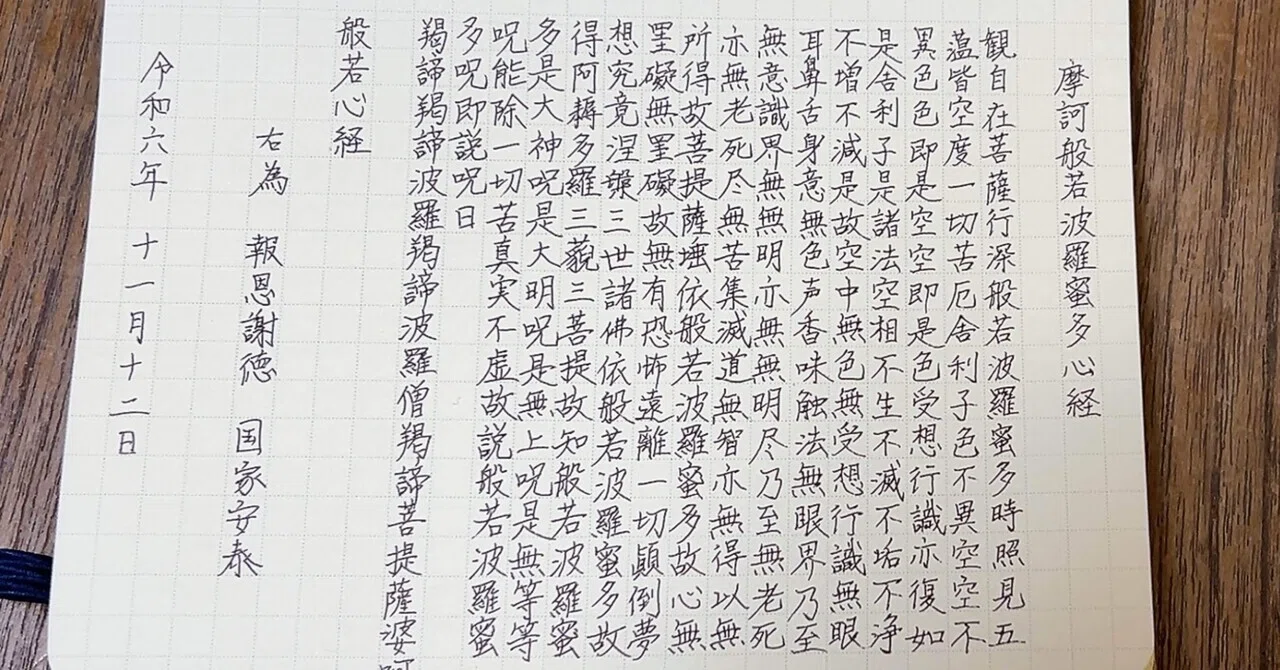 摩訶般若波羅蜜多心経
観自在菩薩行深般若波羅蜜多時照見五
蘊皆空度一切苦厄舎利子色不異空空不
異色色即是空空即是色受想行識亦復如
是舎利子是諸法空相不生不滅不垢不浄
不増不減是故空中無色無受想行識無眼
耳鼻舌身意無色声香味触法無眼界乃至
無意識界無無明亦無無明尽乃至無老死
亦無老死尽無苦集滅道無智亦無得以無
所得故菩提薩埵依般若波羅蜜多故心無
罣礙無罣礙故無有恐怖遠離一切顛倒夢
想究竟涅槃三世諸佛依般若波羅蜜多故
得阿耨多羅三藐三菩提故知般若波羅蜜
多是大神呪是大明呪是無上呪是無等等
呪能除一切苦真実不虚故説般若波羅蜜
多呪即説呪曰
羯諦羯諦波羅羯諦波羅僧羯諦菩提薩婆訶
般若心経
右為 報恩謝徳 国家安泰
令和六年 十一月十二日